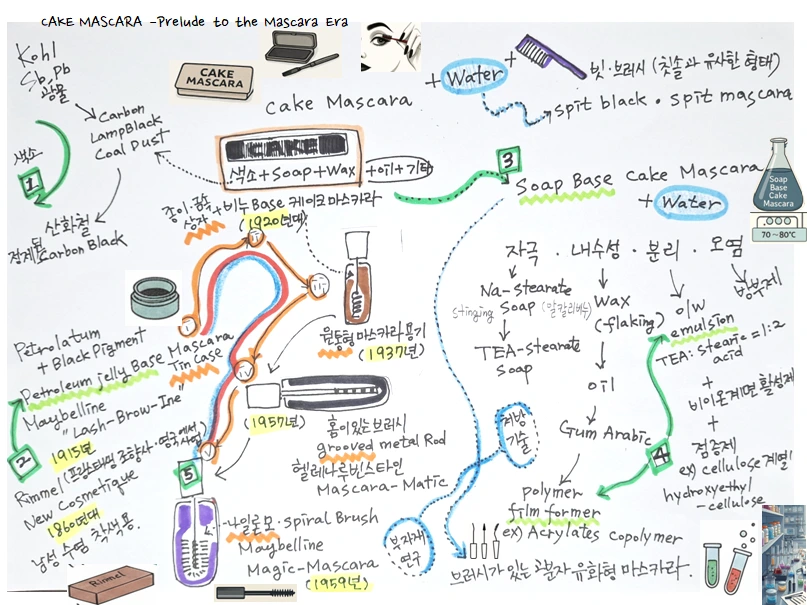 CAKE MASCARA -Prelude to the Mascara Era
Kohl
Sb, Pb
광물
Carbon
LampBlack
Coal Dust
색소
1
산화철
정제된
Carbon Black
CAKE
MASCARA
Cake Mascara
+ Water +
빗·브러시 (칫솔과 유사한 형태)
spit black · spit mascara
색소+Soap+Wax
+oil+기타
종이·광수
상자 + 비누Base 케이크마스카라
(1920년대)
3
Soap Base Cake Mascara
+ Water
Soap
Base
Cake
Mascara
70~80℃
자극 · 내수성 · 분리 · 오염
Na-stearate
Soap (알칼리비누)
stinging
TEA-stearate
Soap
Wax
(flaking)
oil
Gum Arabic
polymer
film former
ex) Acrylates copolymer
o/w
emulsion
TEA: stearic = 1:2
acid
+
비이온계면활성제
+
점증제
ex) cellulose 계열
hydroxyethyl
-cellulose
방부제
4
원통형 마스카라 용기
(1937년)
Petrolatum
+ Black Pigment
Petroleum jelly Base Mascara
Tin case
Maybelline
"Lash-Brow-Ine"
1915년
2
Rimmel (프랑스태생 조향사·영국에서 사업)
New Cosmetique
1860년대
남성 수염 착색용
(1957년)
홈이있는브러시
grooved metal Rod
헬레나루빈스타인
Mascara-Matic
5
나일론모·spiral Brush
Maybelline
Magic-Mascara
(1959년)
처방
기술
부자재
연구
브러시가 있는 고분자 유화형 마스카라.
Rimmel